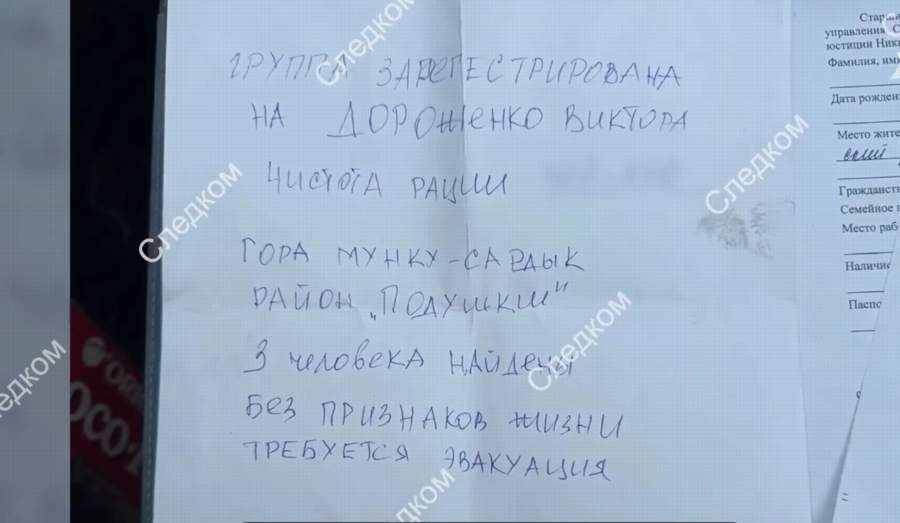 ГРУППА ЗАРЕГЕСТРИРОВАНА
НА ДОРОЖЕНКО ВИКТОРА
ЧИСТОТА РАЦИИ
ГОРА МУНКУ-САРДЫК
РАЙОН „ПОДУШКИ"
3 человека НАЙДЕНЫ
БЕЗ ПРИЗНАКОВ ЖИЗНИ
ТРЕБУЕТСЯ ЭВАКУАЦИЯ
управления С
юстиции Ники
Фамилия, им
Дата рожден
Место жите
Гражданст
Семейное п
Место раб
Наличие
Паспо
Следком
Следком
Следком
Следком
ледком
дком